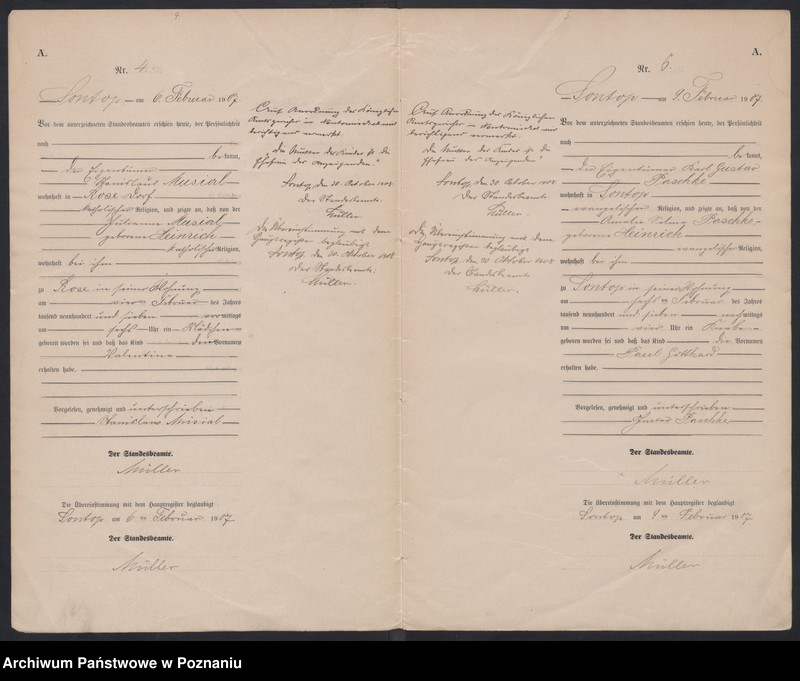 A.
Nr. 4.
Sontop am 6. Februar 1907
Vor dem unterzeichneten Standesbeamten erschien heute, der Persönlichkeit
nach
bekannt,
der Eigentümer
Stanislaus Musial
wohnhaft in Rose Dorf
katholischer Religion, und zeigte an, daß von der
Musial
geborenen Heinrich
katholischer Religion,
wohnhaft bei ihm
zu Rose in seiner Wohnung
am vier Februar des Jahres
tausend neunhundert und sieben vormittags
um sechs Uhr ein Mädchen
geboren worden sei und daß das Kind den Vornamen
Valentine
erhalten habe.
Vorgelesen, genehmigt und unterschrieben
Stanislaus Musial
Der Standesbeamte.
Müller
Die Übereinstimmung mit dem Hauptregister beglaubigt
Sontop am 6ten Februar 1907
Der Standesbeamte.
Müller
Auf Anordnung des Königlichen
Amtsgerichts in wird
berichtigend vermerkt.
Die Mutter des Kindes ist die
Ehefrau des Anzeigenden."
Sontop, den 30. Oktober 1908
Der Standesbeamte.
Müller.
Die Übereinstimmung mit dem
Hauptregister beglaubigt
Sontop, den 30. Oktober 1908
Der Standesbeamte.
Müller.
Auf Anordnung des Königlichen
Amtsgerichts in wird
berichtigend vermerkt.
Die Mutter des Kindes ist die
Ehefrau des Anzeigenden."
Sontop, den 30. Oktober 1908
Der Standesbeamte.
Müller.
Die Übereinstimmung mit dem
Hauptregister beglaubigt
Sontop, den 30. Oktober 1908
Der Standesbeamte
Müller.
A.
Nr. 5.
Sontop am 9. Februar 1907.
Vor dem unterzeichneten Standesbeamten erschien heute, der Persönlichkeit
nach
bekannt,
der Eigentümer Karl Gustav
Paschke
wohnhaft in Sontop
evangelischer Religion, und zeigte an, daß von der
Amalie Paschke
geborenen Heinrich
evangelischer Religion,
wohnhaft bei ihm
zu Sontop in seiner Wohnung
am sechs Februar des Jahres
tausend neunhundert und sieben nachmittags
um vier Uhr ein Knabe
geboren worden sei und daß das Kind die Vornamen
Paul Gotthard
erhalten habe.
Vorgelesen, genehmigt und unterschrieben
Gustav Paschke
Der Standesbeamte.
Müller
Die Übereinstimmung mit dem Hauptregister beglaubigt
Sontop am 9ten Februar 1907
Der Standesbeamte.
Müller
Archiwum Państwowe w Poznaniu